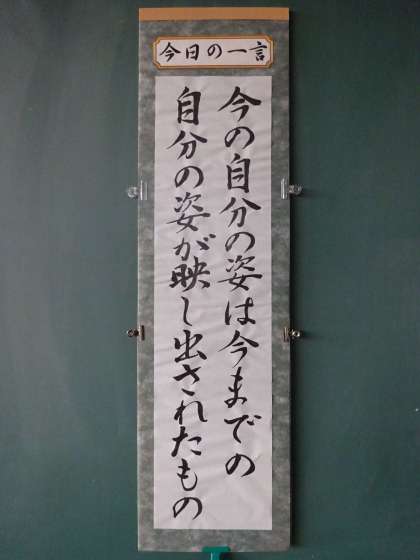 今日の一言
今の自分の姿は今までの
自分の姿が映し出されたもの